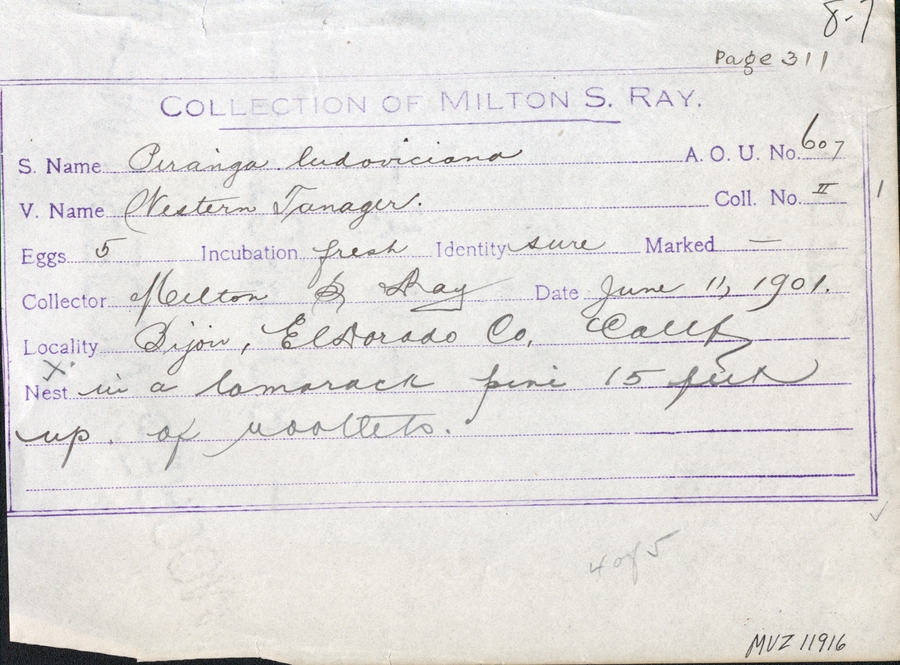 8-7
Page 311
COLLECTION OF MILTON S. RAY.
S. Name Piranga ludoviciana A. O. U. No. 607
V. Name Western Tanager. Coll. No. II 1
Eggs 5 Incubation fresh Identity sure Marked —
Collector Milton S Ray Date June 11, 1901.
Locality Bijou, El Dorado Co, Calif
X.
Nest in a tamarack pine 15 feet
up. of rootlets.
4 of 5
MVZ 11916